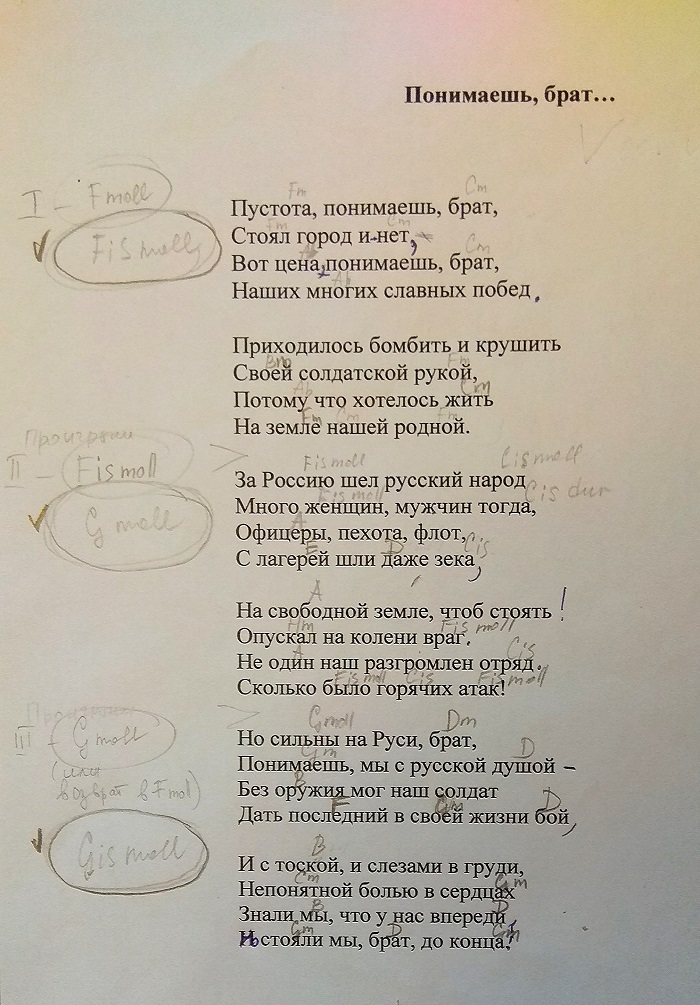 Понимаешь, брат...
I – Fmoll
Fismoll
Fm Cm
Пустота, понимаешь, брат,
Fm Cm
Стоял город и нет,
Cm
Вот цена, понимаешь, брат,
Ab
Наших многих славных побед.
Приходилось бомбить и крушить
Fm
Своей солдатской рукой,
Ab Cm
Потому что хотелось жить
Fm Cm Fm
На земле нашей родной.
Проигрыш
II – Fismoll
Gmoll
Fismoll Cismoll
За Россию шел русский народ
Fismoll Cisdur
Много женщин, мужчин тогда,
A
Офицеры, пехота, флот,
E D Cis
С лагерей шли даже зека,
A
На свободной земле, чтоб стоять!
Hm Fismoll
Опускал на колени враг.
A Cis
Не один наш разгромлен отряд.
Fismoll Cis Fismoll
Сколько было горячих атак!
Проигрыш
III – Gmoll
(или возврат в Fmol)
Gismoll
Gmoll Dm
Но сильны на Руси, брат,
Gm D
Понимаешь, мы с русской душой –
B
Без оружия мог наш солдат
F Gm D
Дать последний в своей жизни бой,
B
И с тоской, и слезами в груди,
Cm Gm
Непонятной болью в сердцах
B D
Знали мы, что у нас впереди,
Gm D Gm
Но стояли мы, брат, до конца!